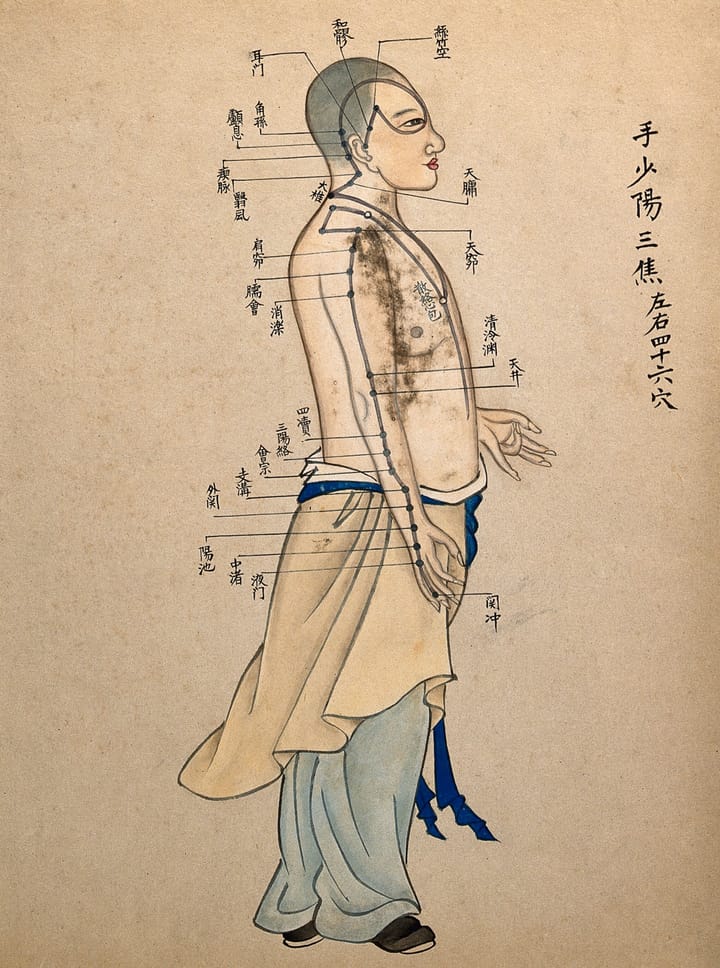 手少陽三焦左右四十六穴
和髎
絲竹空
耳门
角孫
顱息
瘈脉
翳風
大椎
天牖
天窌
肩窌
臑會
消濼
散絡心包
清冷渊
天井
四瀆
三陽絡
會宗
支溝
外関
陽池
中渚
液门
関冲